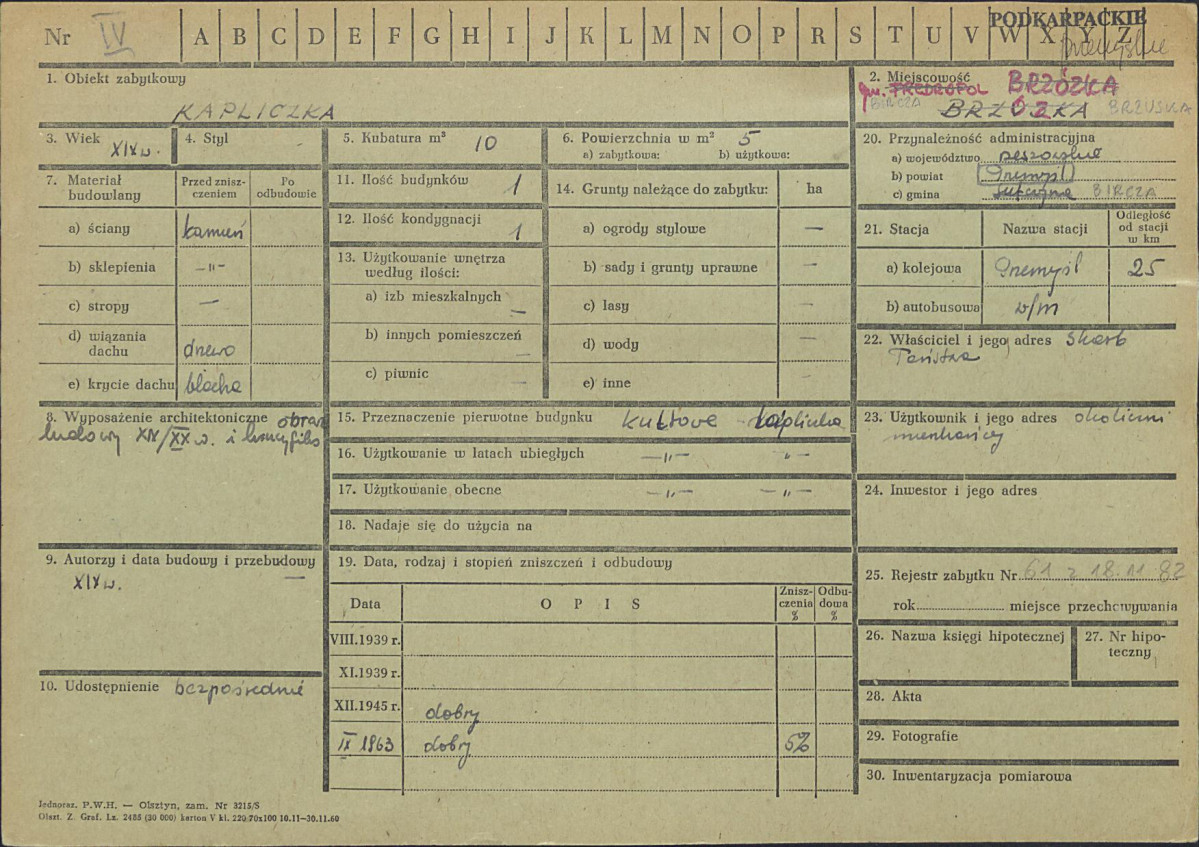 Nr IV A B C D E F G H I J K L M N O P R S T U V W X Y Z
PODKARPACKIE
przemyskie
1. Obiekt zabytkowy
KAPLICZKA
2. Miejscowość
gm. FREDROPOL BRZÓZKA
BIRCZA BRZUZKA BRZUSKA
3. Wiek XIX w.
4. Styl
5. Kubatura m³ 10
6. Powierzchnia w m² 5
a) zabytkowa: b) użytkowa:
7. Materiał budowlany
Przed zniszczeniem
Po odbudowie
a) ściany kamień
b) sklepienia —"—
c) stropy —
d) wiązania dachu drewo
e) krycie dachu blacha
8. Wyposażenie architektoniczne obraz
ludowy XIX/XX w. i krucyfiks
9. Autorzy i data budowy i przebudowy
XIX w. —
10. Udostępnienie bezpośrednie
11. Ilość budynków 1
12. Ilość kondygnacji 1
13. Użytkowanie wnętrza według ilości:
a) izb mieszkalnych —
b) innych pomieszczeń —
c) piwnic —
14. Grunty należące do zabytku: ha
a) ogrody stylowe —
b) sady i grunty uprawne —
c) lasy —
d) wody —
e) inne
15. Przeznaczenie pierwotne budynku kultowe kapliczka
16. Użytkowanie w latach ubiegłych —"— "—
17. Użytkowanie obecne —"— —"—
18. Nadaje się do użycia na
19. Data, rodzaj i stopień zniszczeń i odbudowy
Data OPIS Zniszczenia % Odbudowa %
VIII.1939 r.
XI.1939 r.
XII.1945 r. dobry
IX 1963 dobry 5%
20. Przynależność administracyjna
a) województwo rzeszowskie
b) powiat Przemyśl
c) gmina BIRCZA
21. Stacja Nazwa stacji Odległość od stacji w km
a) kolejowa Przemyśl 25
b) autobusowa w/m
22. Właściciel i jego adres Skarb
Państwa
23. Użytkownik i jego adres okoliczni
mieszkańcy
24. Inwestor i jego adres
25. Rejestr zabytku Nr 61 z 18.11.82
rok miejsce przechowywania
26. Nazwa księgi hipotecznej
27. Nr hipoteczny
28. Akta
29. Fotografie
30. Inwentaryzacja pomiarowa
Jednoraz. P.W.H. — Olsztyn, zam. Nr 3215/S
Olszt. Z. Graf. Lz. 2488 (30 000) karton V kl. 220 70x100 10.11—30.11.60